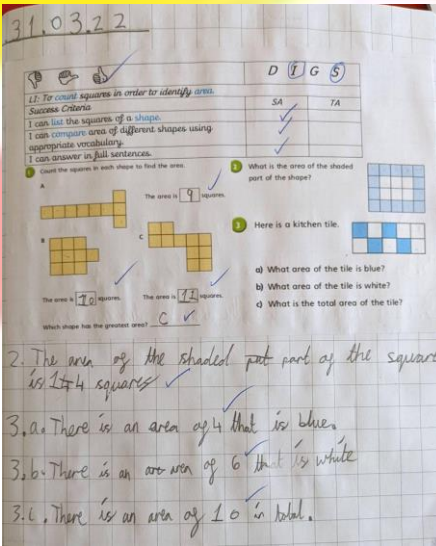 31.03.22
D I G S
LI: To count squares in order to identify area.
Success Criteria
SA
TA
I can list the squares of a shape.
I can compare area of different shapes using
appropriate vocabulary.
I can answer in full sentences.
1 Count the squares in each shape to find the area.
A
The area is 9 squares.
B
C
The area is 10 squares.
The area is 11 squares.
Which shape has the greatest area? C
2 What is the area of the shaded
part of the shape?
3 Here is a kitchen tile.
a) What area of the tile is blue?
b) What area of the tile is white?
c) What is the total area of the tile?
2. The area of the shaded part of the square
is 14 squares
3.a. There is an area of 4 that is blue.
3.b. There is an area of 6 that is white
3.c. There is an area of 10 in total.